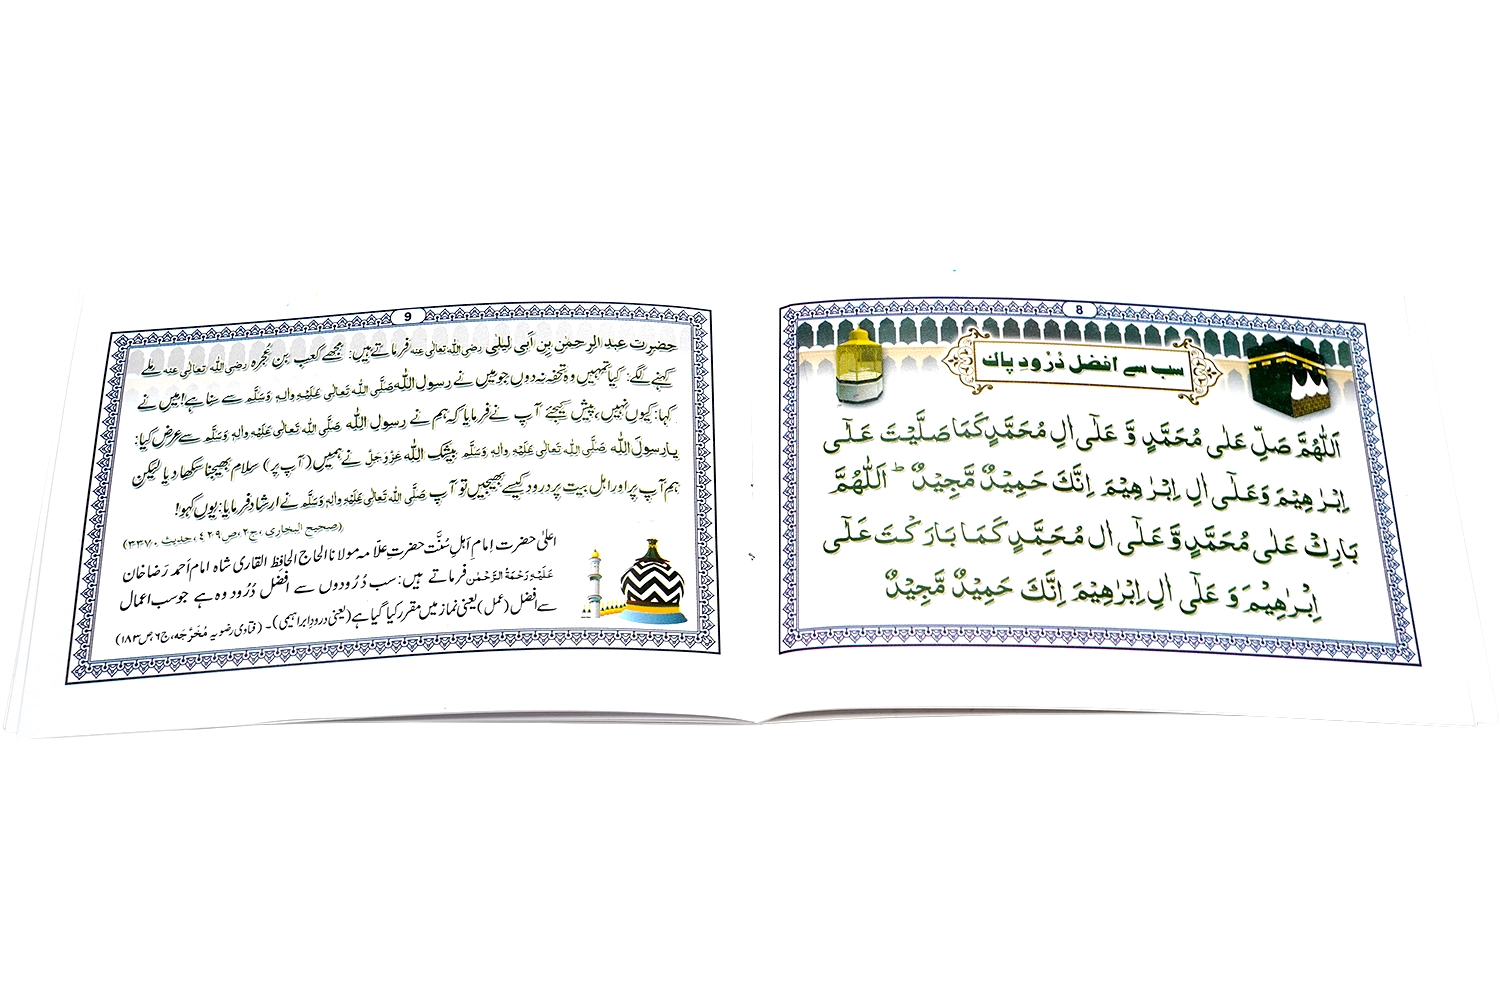 8
سب سے افضل دُرُودِ پاک
اَللّٰهُمَّ صَلِّ عَلٰى مُحَمَّدٍ وَّ عَلٰٓى اٰلِ مُحَمَّدٍ كَمَا صَلَّيْتَ عَلٰٓى
اِبْرٰهِيْمَ وَعَلٰٓى اٰلِ اِبْرٰهِيْمَ اِنَّكَ حَمِيْدٌ مَّجِيْدٌ ؕ اَللّٰهُمَّ
بَارِكْ عَلٰى مُحَمَّدٍ وَّ عَلٰٓى اٰلِ مُحَمَّدٍ كَمَا بَارَكْتَ عَلٰٓى
اِبْرٰهِيْمَ وَ عَلٰٓى اٰلِ اِبْرٰهِيْمَ اِنَّكَ حَمِيْدٌ مَّجِيْدٌ
9
حضرت عبد الرحمٰن بِن اَبی لیلٰی رضی اللہ تعالٰی عنہ فرماتے ہیں: مجھے کعب بن عُجرہ رضی اللہ تعالٰی عنہ ملے
کہنے لگے: کیا تمہیں وہ تحفہ نہ دوں جو میں نے رسول اللہ صَلَّی اللہ تَعَالٰی عَلَیْہِ واٰلہٖ وَسَلَّم سے سنا ہے! میں نے
کہا: کیوں نہیں، پیش کیجئے آپ نے فرمایا کہ ہم نے رسول اللہ صَلَّی اللہ تَعَالٰی عَلَیْہِ واٰلہٖ وَسَلَّم سے عرض کیا:
یا رسول اللہ صَلَّی اللہ تَعَالٰی عَلَیْہِ واٰلہٖ وَسَلَّم بیشک اللہ عَزَّوَجَلَّ نے ہمیں (آپ پر) سلام بھیجنا سکھا دیا لیکن
ہم آپ پر اور اہل بیت پر درود کیسے بھیجیں تو آپ صَلَّی اللہ تَعَالٰی عَلَیْہِ واٰلہٖ وَسَلَّم نے ارشاد فرمایا: یوں کہو!
(صحیح البخاری، ج۲، ص۴۲۹، حدیث ۳۳۷۰)
اعلیٰ حضرت اِمامِ اَہلِ سُنَّت حضرتِ علّامہ مولانا الحاج الحافِظ القاری شاہ امام اَحمد رَضا خان
عَلَیْہِ رَحْمَۃُ الرَّحْمٰن فرماتے ہیں: سب دُرُودوں سے اَفْضَل دُرُود وہ ہے جو سب اعمال
سے افضل (عمل) یعنی نماز میں مقرر کیا گیا ہے (یعنی درودِ ابراہیمی)۔ (فتاوی رضویہ مُخَرَّجہ، ج۶، ص۱۸۳)